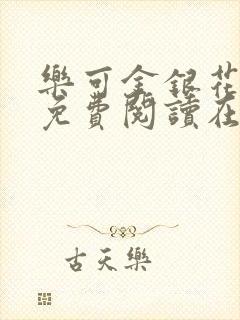 樂可金銀花
免費閱讀在
古天樂